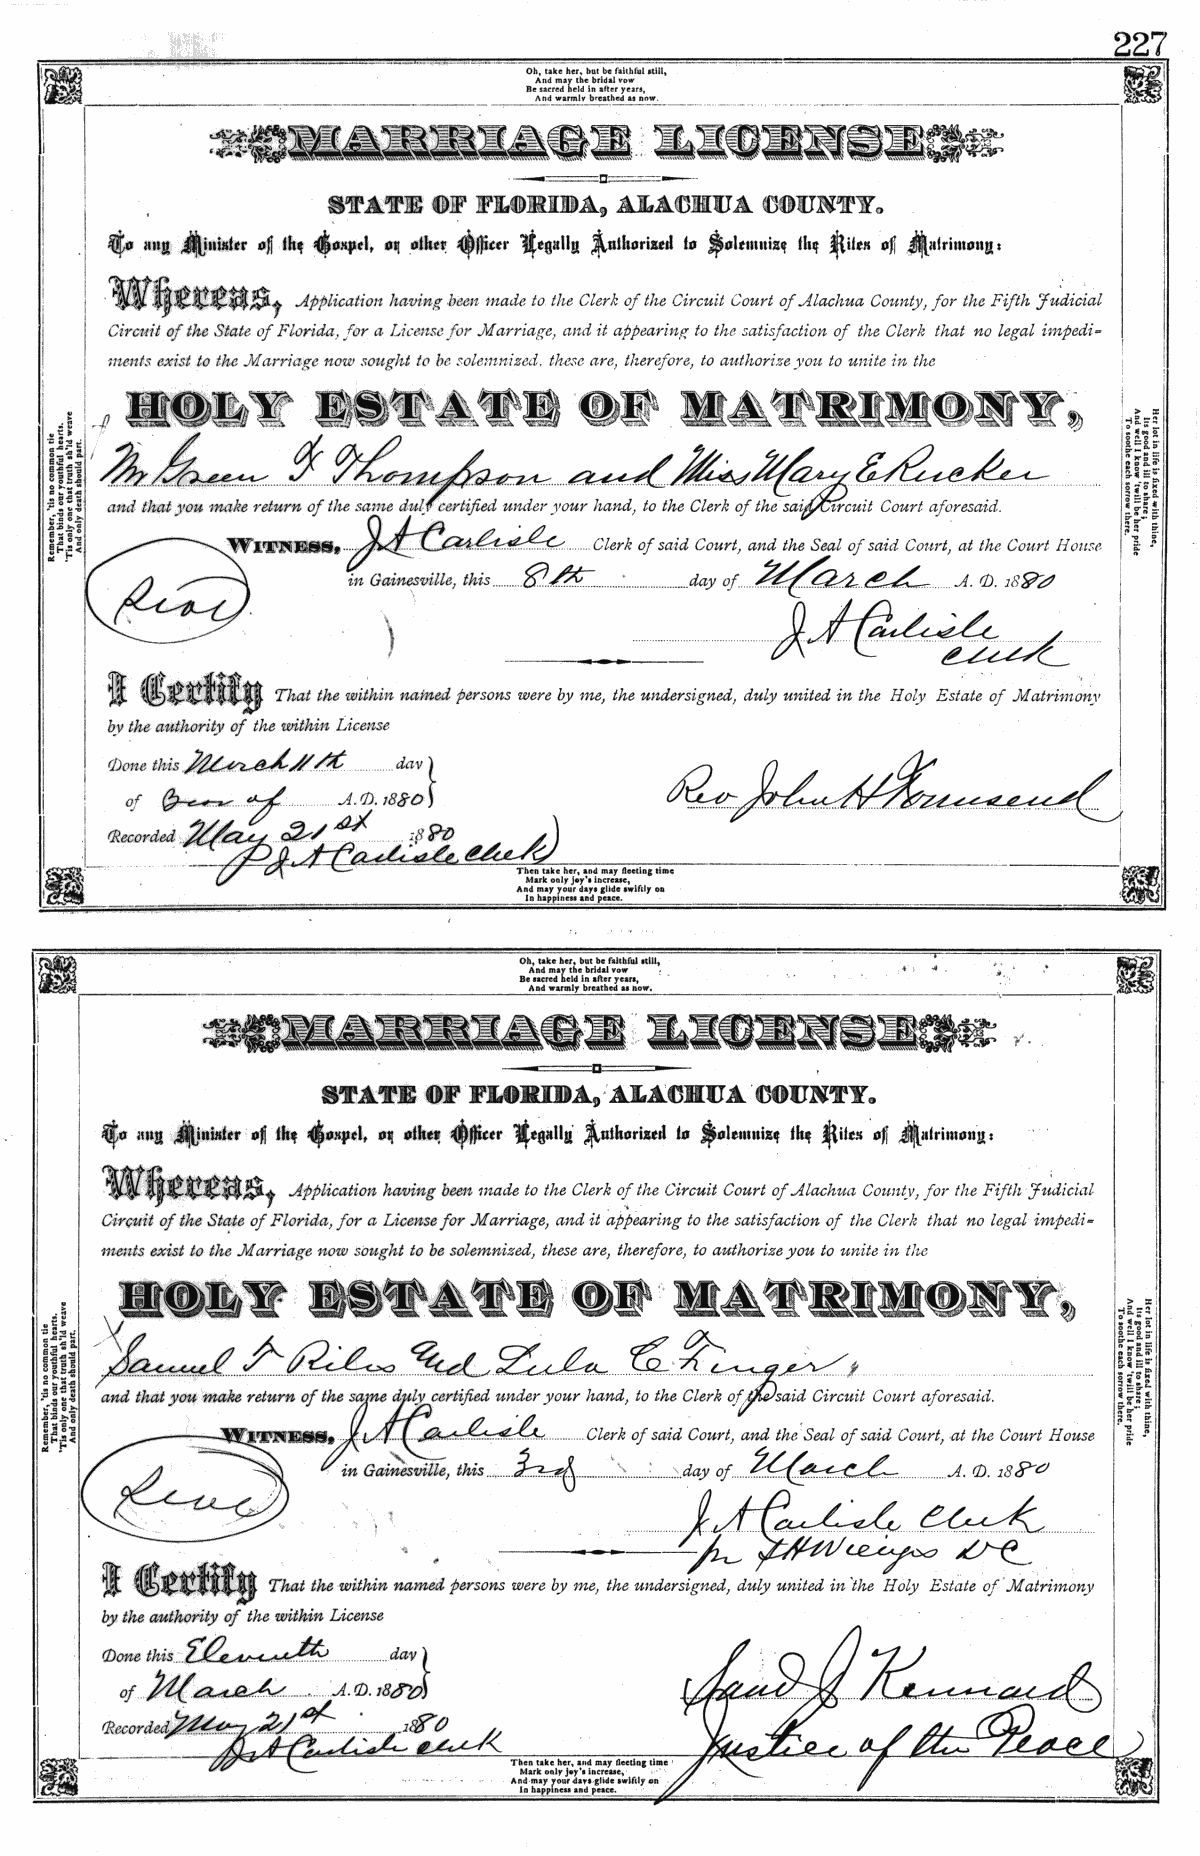 227
Oh, take her, but be faithful still,
And may the bridal vow
Be sacred held in after years,
And warmly breathed as now.
MARRIAGE LICENSE
STATE OF FLORIDA, ALACHUA COUNTY.
To any Minister of the Gospel, or other Officer Legally Authorized to Solemnize the Rites of Matrimony:
Whereas, Application having been made to the Clerk of the Circuit Court of Alachua County, for the Fifth Judicial
Circuit of the State of Florida, for a License for Marriage, and it appearing to the satisfaction of the Clerk that no legal impedi=
ments exist to the Marriage now sought to be solemnized, these are, therefore, to authorize you to unite in the
HOLY ESTATE OF MATRIMONY,
Mr Green F Thompson and Miss Mary E Rucker
and that you make return of the same duly certified under your hand, to the Clerk of the said Circuit Court aforesaid.
WITNESS, J A Carlisle Clerk of said Court, and the Seal of said Court, at the Court House
in Gainesville, this 8th day of March A. D. 1880
J A Carlisle
Clerk
I Certify That the within named persons were by me, the undersigned, duly united in the Holy Estate of Matrimony
by the authority of the within License
Done this March 11th day
of A. D. 1880
Rev John H Townsend
Recorded May 21st 1880
J A Carlisle Clerk
Then take her, and may fleeting time
Mark only joy's increase,
And may your days glide swiftly on
In happiness and peace.
Remember, 'tis no common tie
That binds our youthful hearts.
'Tis only one that truth sh'ld weave
And only death should part.
Her lot in life is fixed with thine,
Its good and ill to share;
And well I know 'twill be her pride
To soothe each sorrow there.
Oh, take her, but be faithful still,
And may the bridal vow
Be sacred held in after years,
And warmly breathed as now.
MARRIAGE LICENSE
STATE OF FLORIDA, ALACHUA COUNTY.
To any Minister of the Gospel, or other Officer Legally Authorized to Solemnize the Rites of Matrimony:
Whereas, Application having been made to the Clerk of the Circuit Court of Alachua County, for the Fifth Judicial
Circuit of the State of Florida, for a License for Marriage, and it appearing to the satisfaction of the Clerk that no legal impedi=
ments exist to the Marriage now sought to be solemnized, these are, therefore, to authorize you to unite in the
HOLY ESTATE OF MATRIMONY,
Samuel T Riles and Lula C Zinger
and that you make return of the same duly certified under your hand, to the Clerk of the said Circuit Court aforesaid.
WITNESS, J A Carlisle Clerk of said Court, and the Seal of said Court, at the Court House
in Gainesville, this 3rd day of March A. D. 1880
J A Carlisle Clerk
DC
I Certify That the within named persons were by me, the undersigned, duly united in the Holy Estate of Matrimony
by the authority of the within License
Done this Eleventh day
of March A. D. 1880
J Kennard
Recorded May 21st 1880
Justice of the Peace
J A Carlisle Clerk
Then take her, and may fleeting time
Mark only joy's increase,
And may your days glide swiftly on
In happiness and peace.
Remember, 'tis no common tie
That binds our youthful hearts.
'Tis only one that truth sh'ld weave
And only death should part.
Her lot in life is fixed with thine,
Its good and ill to share;
And well I know 'twill be her pride
To soothe each sorrow there.